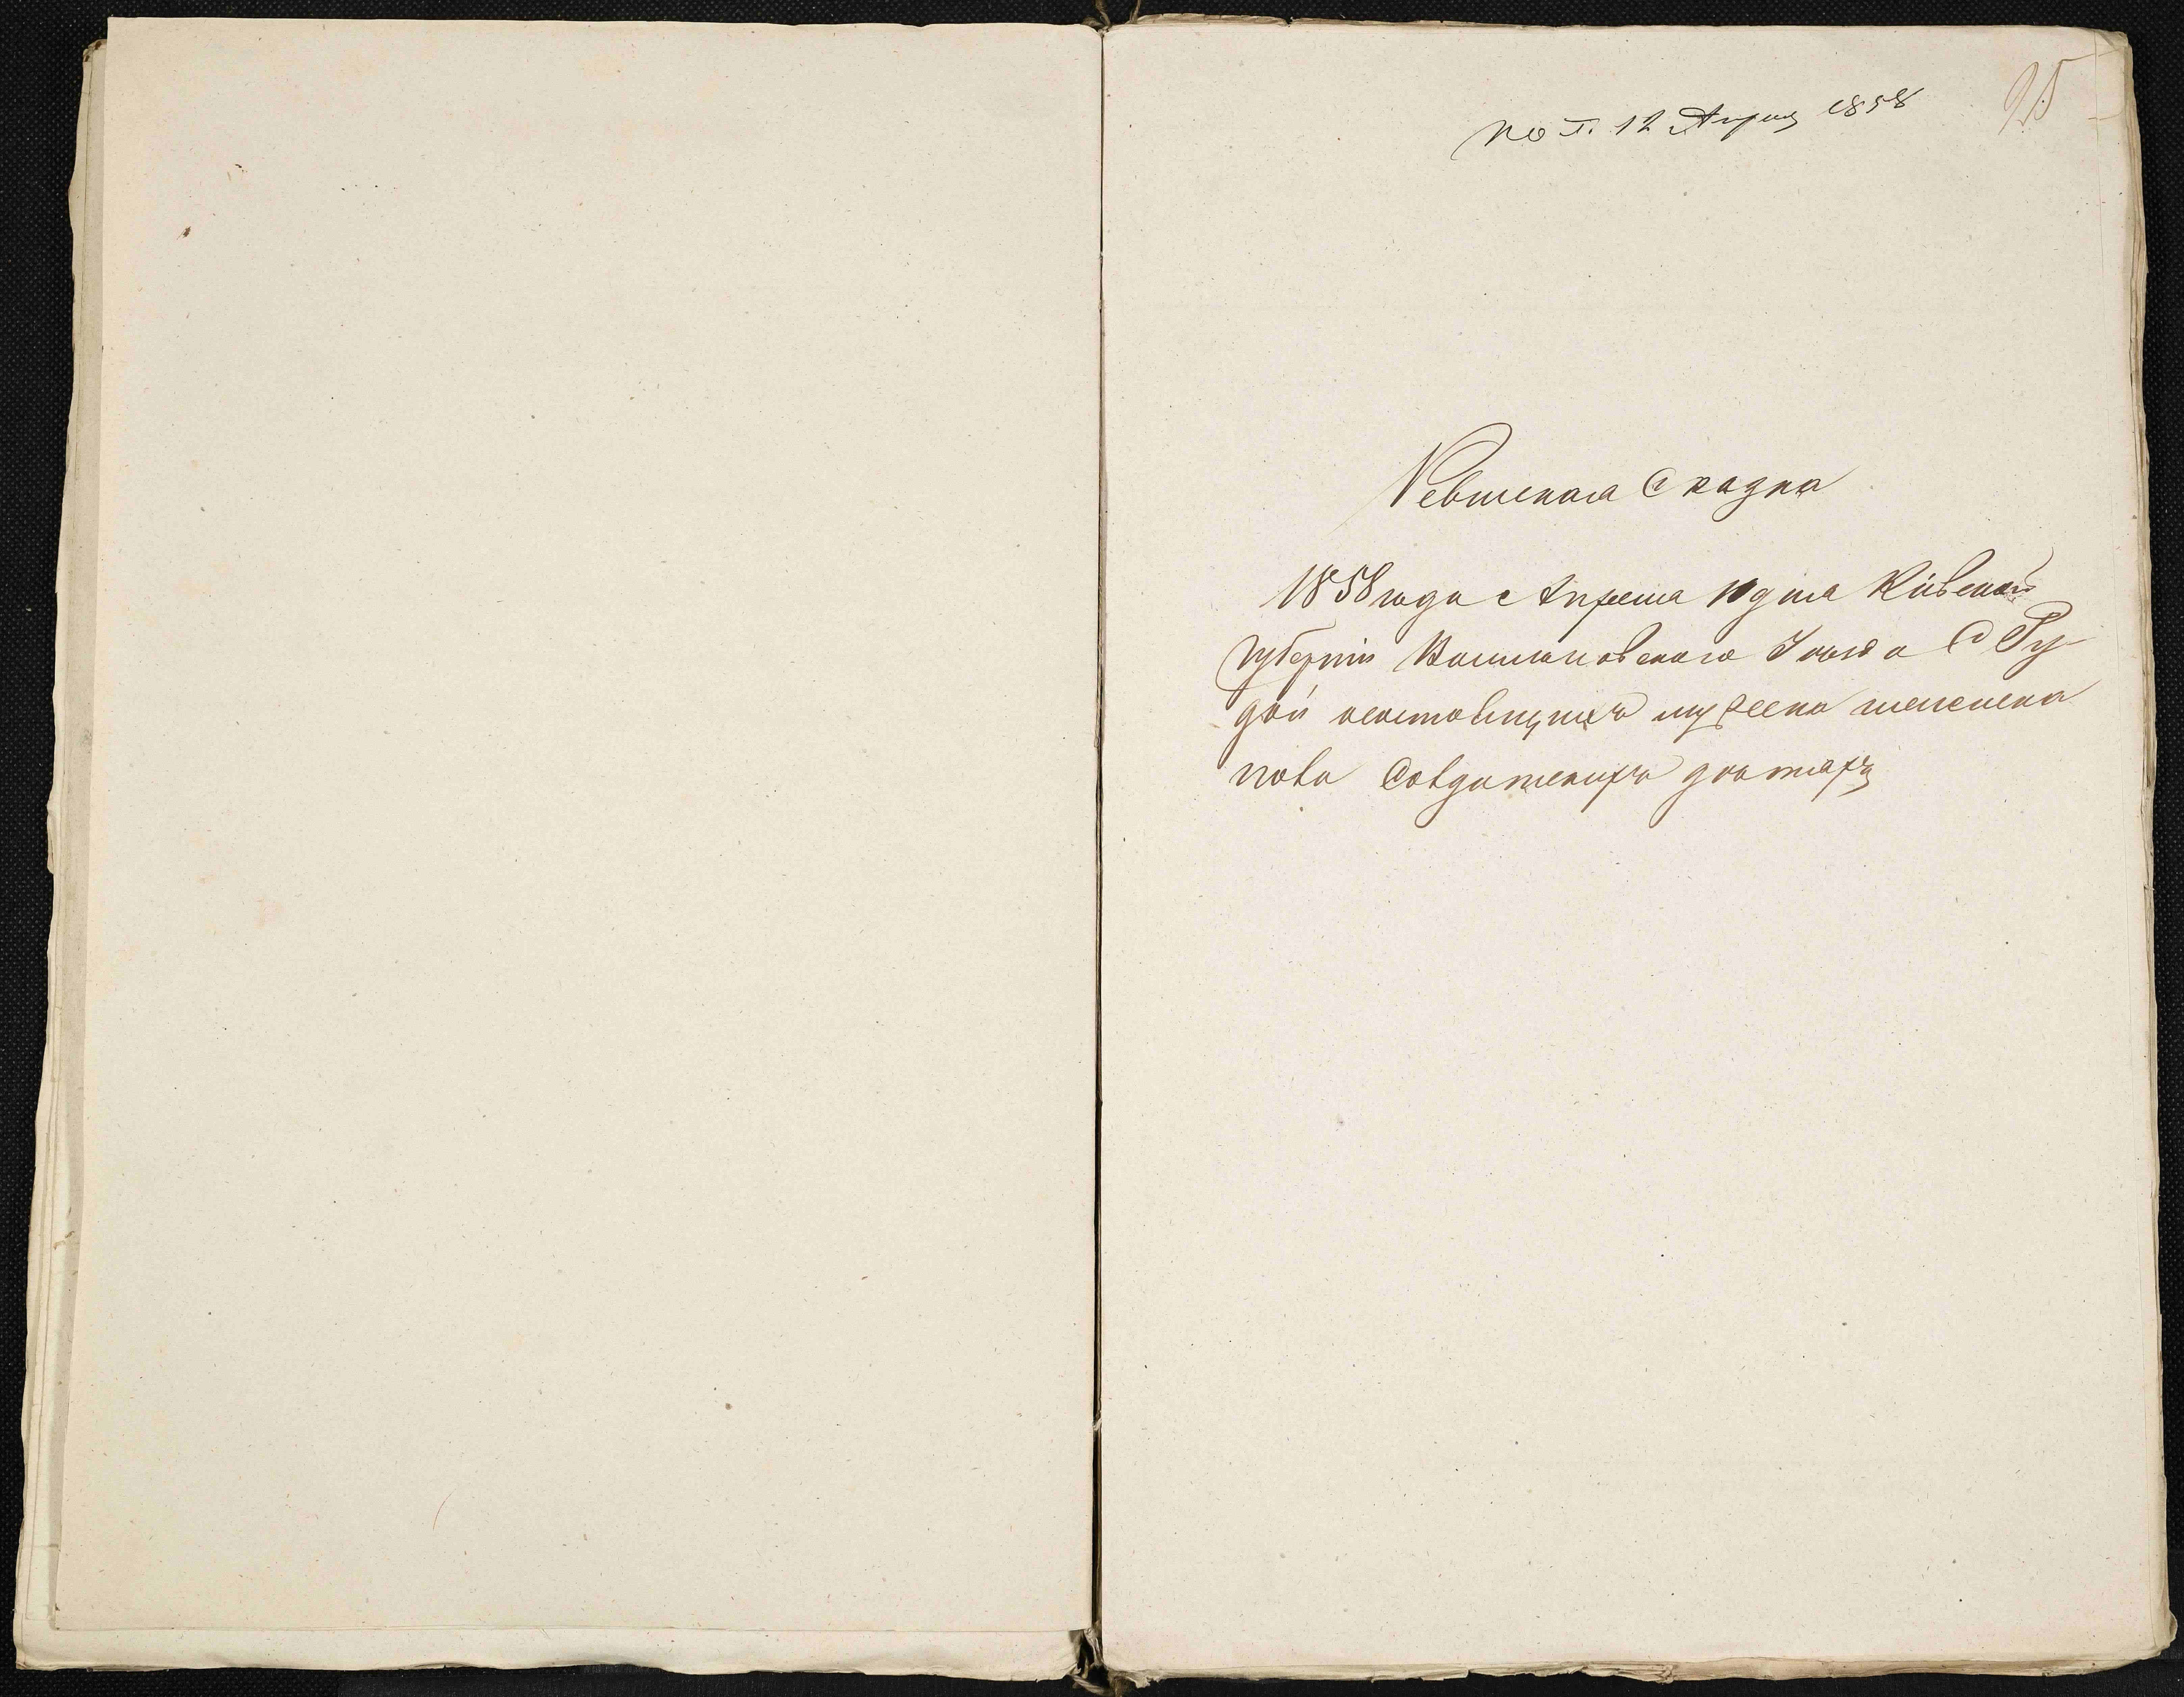 12 Апреля 1858
25
Ревизская Сказка
1858 года Апреля 10 дня Кіевской
губерніи Васильковскаго Уѣзда С Ру
дой о состоящихъ мужеска и женска
пола Солдатскихъ дѣтяхъ